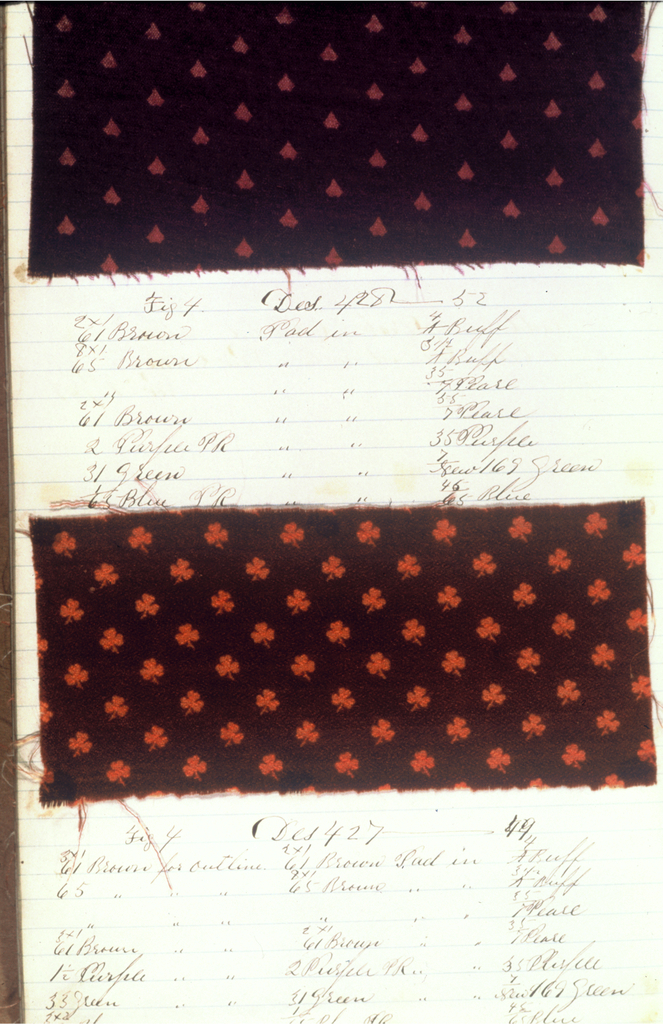 Fig 4. Des 428 52
2x1 4
61 Brown Pad in A Buff
8x1 3 1/2
65 Brown " " A Buff
35
" " " 7 Pearl
2x1 35
61 Brown " " 7 Pearl
2 Purple PR " " 35 Purple
7
31 Green " " New 169 Green
45
65 Blue PR " " 65 Blue
Fig 4 Des 427 49
3x1 2x1 4
61 Brown for outline 61 Brown Pad in A Buff
65 " " " 65 Brown " " A Buff
35
" " " " " " 7 Pearl
3x1 2x1 35
61 Brown " " 61 Brown " " 7 Pearl
1 1/2 Purple " " 2 Purple PR " 35 Purple
7
33 Green " " 31 Green " " New 169 Green
45
65 Blue